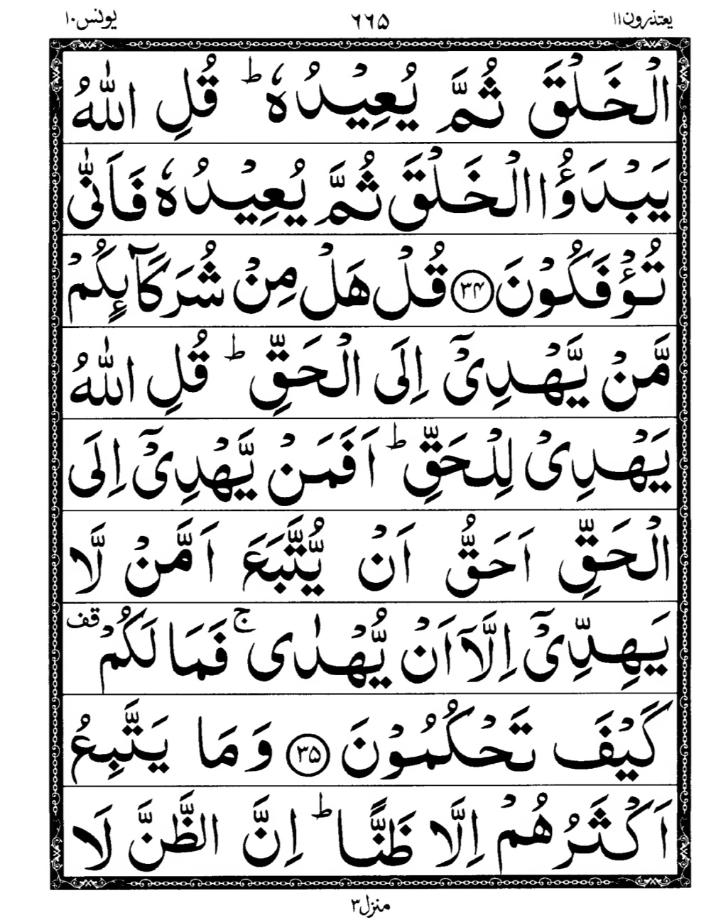 یعتذرون۱۱ ۶۶۵ یونس۱۰
الْخَلْقَ ثُمَّ یُعِیْدُهٗ ؕ قُلِ اللّٰهُ
یَبْدَؤُا الْخَلْقَ ثُمَّ یُعِیْدُهٗ فَاَنّٰی
تُؤْفَكُوْنَ ۳۴ قُلْ هَلْ مِنْ شُرَكَآىِٕكُمْ
مَّنْ یَّهْدِیْۤ اِلَی الْحَقِّ ؕ قُلِ اللّٰهُ
یَهْدِیْ لِلْحَقِّ ؕ اَفَمَنْ یَّهْدِیْۤ اِلَی
الْحَقِّ اَحَقُّ اَنْ یُّتَّبَعَ اَمَّنْ لَّا
یَهِدِّیْۤ اِلَّاۤ اَنْ یُّهْدٰی ۚ فَمَا لَكُمْ قف
كَیْفَ تَحْكُمُوْنَ ۳۵ وَ مَا یَتَّبِعُ
اَكْثَرُهُمْ اِلَّا ظَنًّا ؕ اِنَّ الظَّنَّ لَا
منزل۳